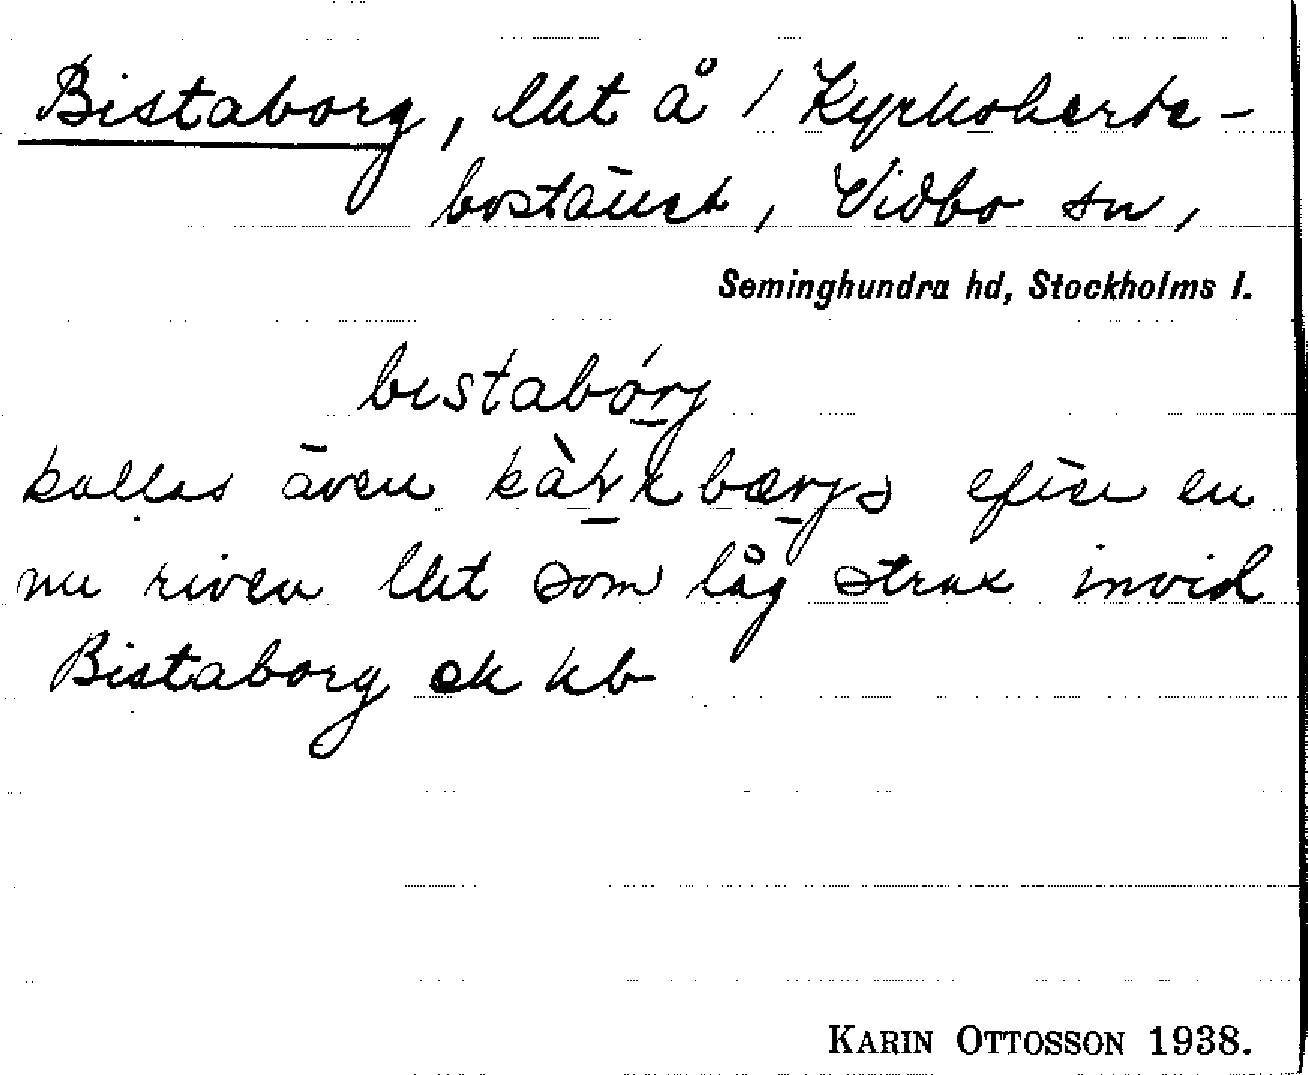 Bistaborg, lht å / Kyrkoherde-
boställe, Vidbo sn,
Seminghundra hd, Stockholms l.
bıstabórj
kallas även bærjs efter en
nu riven lht som låg strax invid
Bistaborg ek kb
KARIN OTTOSSON 1938.